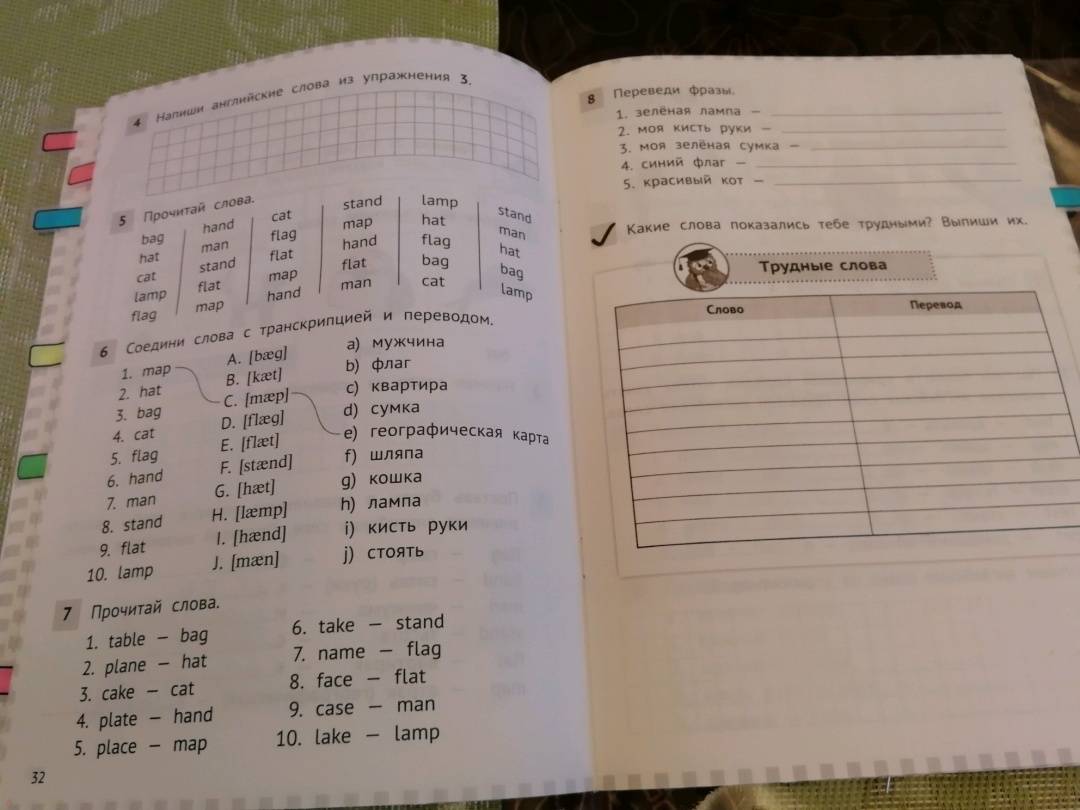 4 Напиши английские слова из упражнения 3.
5 Прочитай слова.
bag hand cat stand lamp stand
hat man flag map hat man
cat stand flat hand flag hat
lamp flat map flat bag bag
flag map hand man cat lamp
6 Соедини слова с транскрипцией и переводом.
1. map A. [bæg] a) мужчина
2. hat B. [kæt] b) флаг
3. bag C. [mæp] c) квартира
4. cat D. [flæg] d) сумка
5. flag E. [flæt] e) географическая карта
6. hand F. [stænd] f) шляпа
7. man G. [hæt] g) кошка
8. stand H. [læmp] h) лампа
9. flat I. [hænd] i) кисть руки
10. lamp J. [mæn] j) стоять
7 Прочитай слова.
1. table — bag 6. take — stand
2. plane — hat 7. name — flag
3. cake — cat 8. face — flat
4. plate — hand 9. case — man
5. place — map 10. lake — lamp
32
8 Переведи фразы.
1. зелёная лампа —
2. моя кисть руки —
3. моя зелёная сумка —
4. синий флаг —
5. красивый кот —
Какие слова показались тебе трудными? Выпиши их.
Трудные слова
Слово Перевод